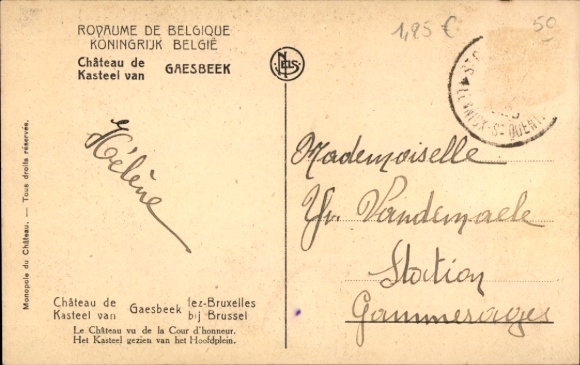 ROYAUME DE BELGIQUE
KONINGRIJK BELGIË
Château de
Kasteel van GAESBEEK
NELS
1,85 €
50
LENNICK-ST QUENTIN
Hélène
Mademoiselle
Yv. Vandemaele
Station
Gammerages
Monopole du Château. — Tous droits réservés.
Château de
Kasteel van Gaesbeek
lez-Bruxelles
bij Brussel
Le Château vu de la Cour d'honneur.
Het Kasteel gezien van het Hoofdplein.